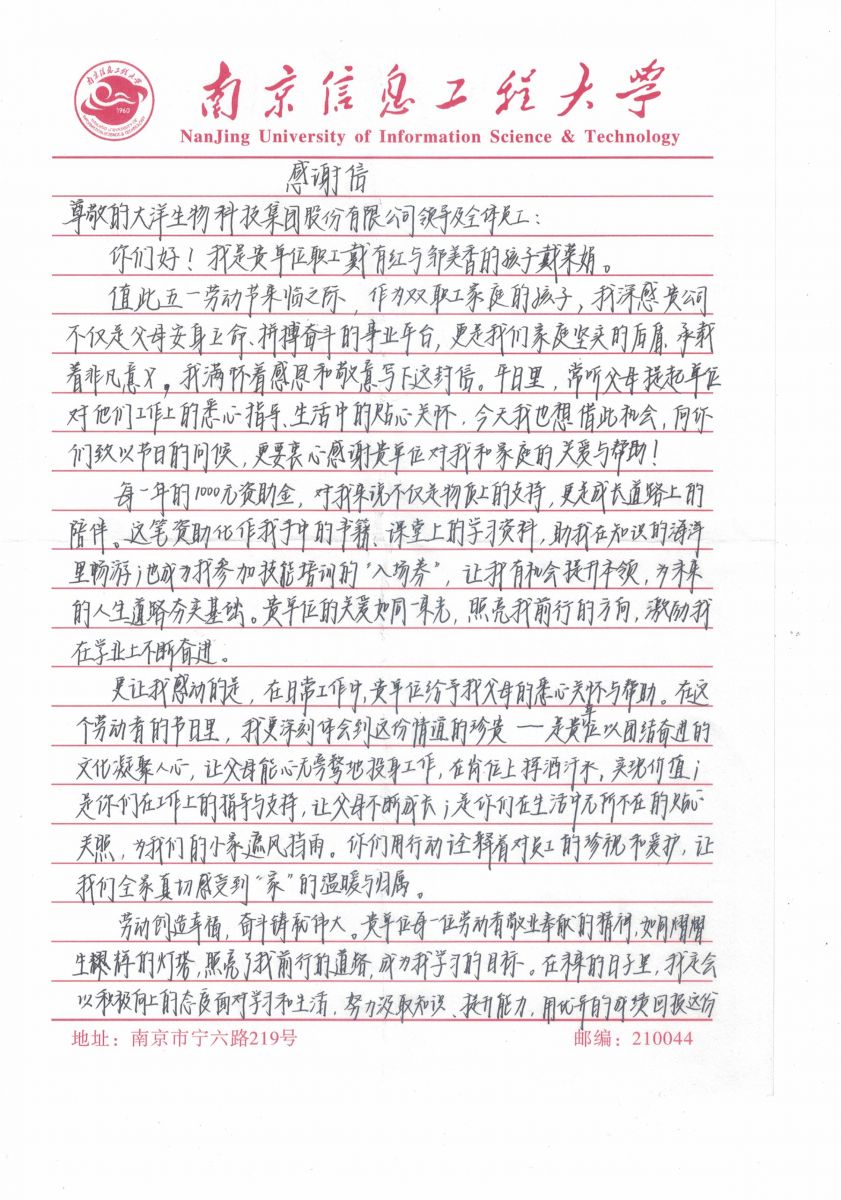 南京信息工程大学
NanJing University of Information Science & Technology
感谢信
尊敬的大洋生物科技集团股份有限公司领导及全体员工：
你们好！我是贵单位职工戴有红与邹美香的孩子戴荣娟。
值此五一劳动节来临之际，作为双职工家庭的孩子，我深感贵公司
不仅是父母安身立命、拼搏奋斗的事业平台，更是我们家庭坚实的后盾，承载
着非凡意义。我满怀着感恩和敬意写下这封信。平日里，常听父母提起单位
对他们工作上的悉心指导、生活中的贴心关怀，今天我也想借此机会，向你
们致以节日的问候，更要衷心感谢贵单位对我和家庭的关爱与帮助！
每一年的1000元资助金，对我来说不仅是物质上的支持，更是成长道路上的
陪伴。这笔资助化作我手中的书籍、课堂上的学习资料，助我在知识的海洋
里畅游；也成为我参加技能培训的“入场券”，让我有机会提升本领，为未来
的人生道路夯实基础。贵单位的关爱如同一束光，照亮我前行的方向，激励我
在学业上不断奋进。
更让我感动的是，在日常工作中，贵单位给予我父母的悉心关怀与帮助。在这
个劳动者的节日里，我更深刻体会到这份情谊的珍贵——是贵单位以团结奋进的
文化凝聚人心，让父母能心无旁骛地投身工作，在岗位上挥洒汗水，实现价值；
是你们在工作上的指导与支持，让父母不断成长；是你们在生活中无所不在的贴心
关照，为我们的小家遮风挡雨。你们用行动诠释着对员工的珍视和爱护，让
我们全家真切感受到“家”的温暖与归属。
劳动创造幸福，奋斗铸就伟大。贵单位每一位劳动者敬业奉献的精神，如同熠熠
生辉的灯塔，照亮了我前行的道路，成为我学习的目标。在未来的日子里，我定会
以积极向上的态度面对学习和生活，努力汲取知识、提升能力，用优异的成绩回报这份
地址：南京市宁六路219号
邮编：210044